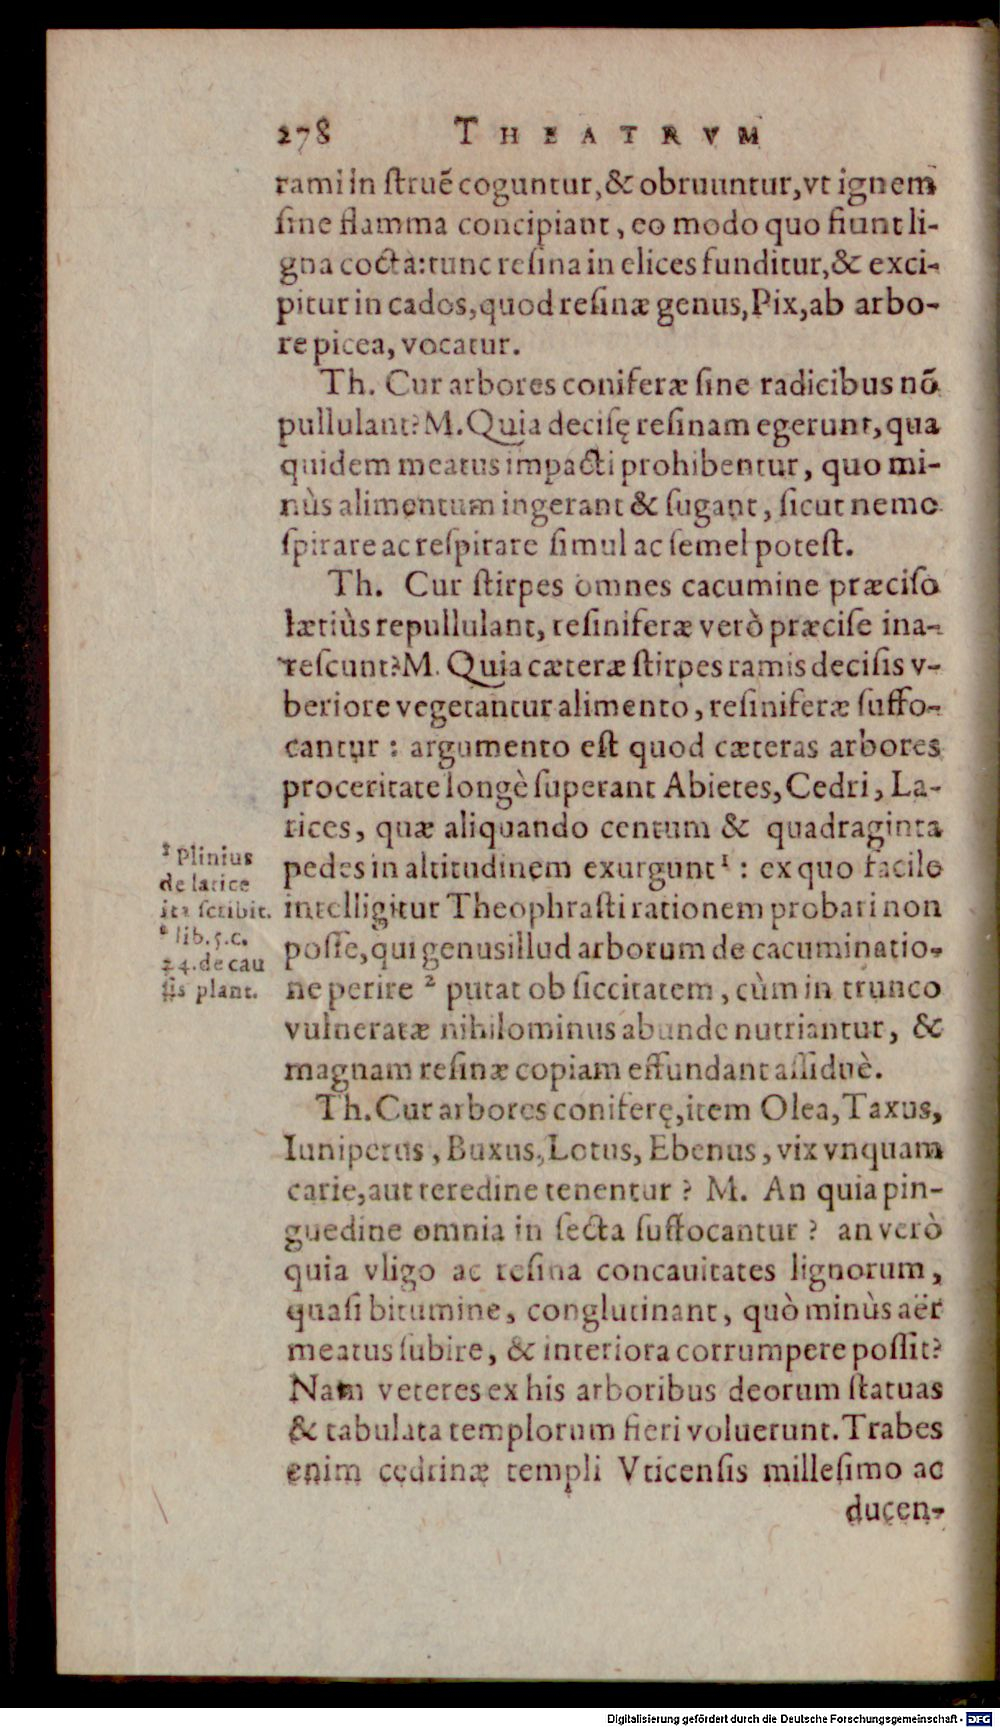 278 THEATRVM
rami in ſtruẽ coguntur, & obruuntur, vt ignem
ſine flamma concipiant, eo modo quo fiunt li-
gna cocta: tunc reſina in elices funditur, & exci-
pitur in cados, quod reſinæ genus, Pix, ab arbo-
re picea, vocatur.
Th. Cur arbores coniferæ ſine radicibus nõ
pullulant? M. Quia deciſę reſinam egerunt, qua
quidem meatus impacti prohibentur, quo mi-
nùs alimentum ingerant & ſugant, ſicut nemo
ſpirare ac reſpirare ſimul ac ſemel poteſt.
Th. Cur ſtirpes omnes cacumine præciſo
lætiùs repullulant, reſiniferæ verò præciſe ina-
reſcunt? M. Quia cæteræ ſtirpes ramis deciſis v-
beriore vegetantur alimento, reſiniferæ ſuffo-
cantur : argumento eſt quod cæteras arbores
proceritate longè ſuperant Abietes, Cedri, La-
rices, quæ aliquando centum & quadraginta
pedes in altitudinem exurgunt¹ : ex quo facile
intelligitur Theophraſti rationem probari non
poſſe, qui genus illud arborum de cacuminatio-
ne perire ² putat ob ſiccitatem, cùm in trunco
vulneratæ nihilominus abunde nutriantur, &
magnam reſinæ copiam effundant aſſiduè.
Th. Cur arbores coniferę, item Olea, Taxus,
Iuniperus, Buxus, Lotus, Ebenus, vix vnquam
carie, aut teredine tenentur ? M. An quia pin-
guedine omnia in ſecta ſuffocantur ? an verò
quia vligo ac reſina concauitates lignorum,
quaſi bitumine, conglutinant, quò minùs aër
meatus ſubire, & interiora corrumpere poſſit?
Nam veteres ex his arboribus deorum ſtatuas
& tabulata templorum fieri voluerunt. Trabes
enim cedrinæ templi Vticenſis milleſimo ac
ducen-
¹ Plinius
de larice
ita ſcribit.
² lib. 5. c.
24. de cau
ſis plant.
Digitalisierung gefördert durch die Deutsche Forschungsgemeinschaft - DFG